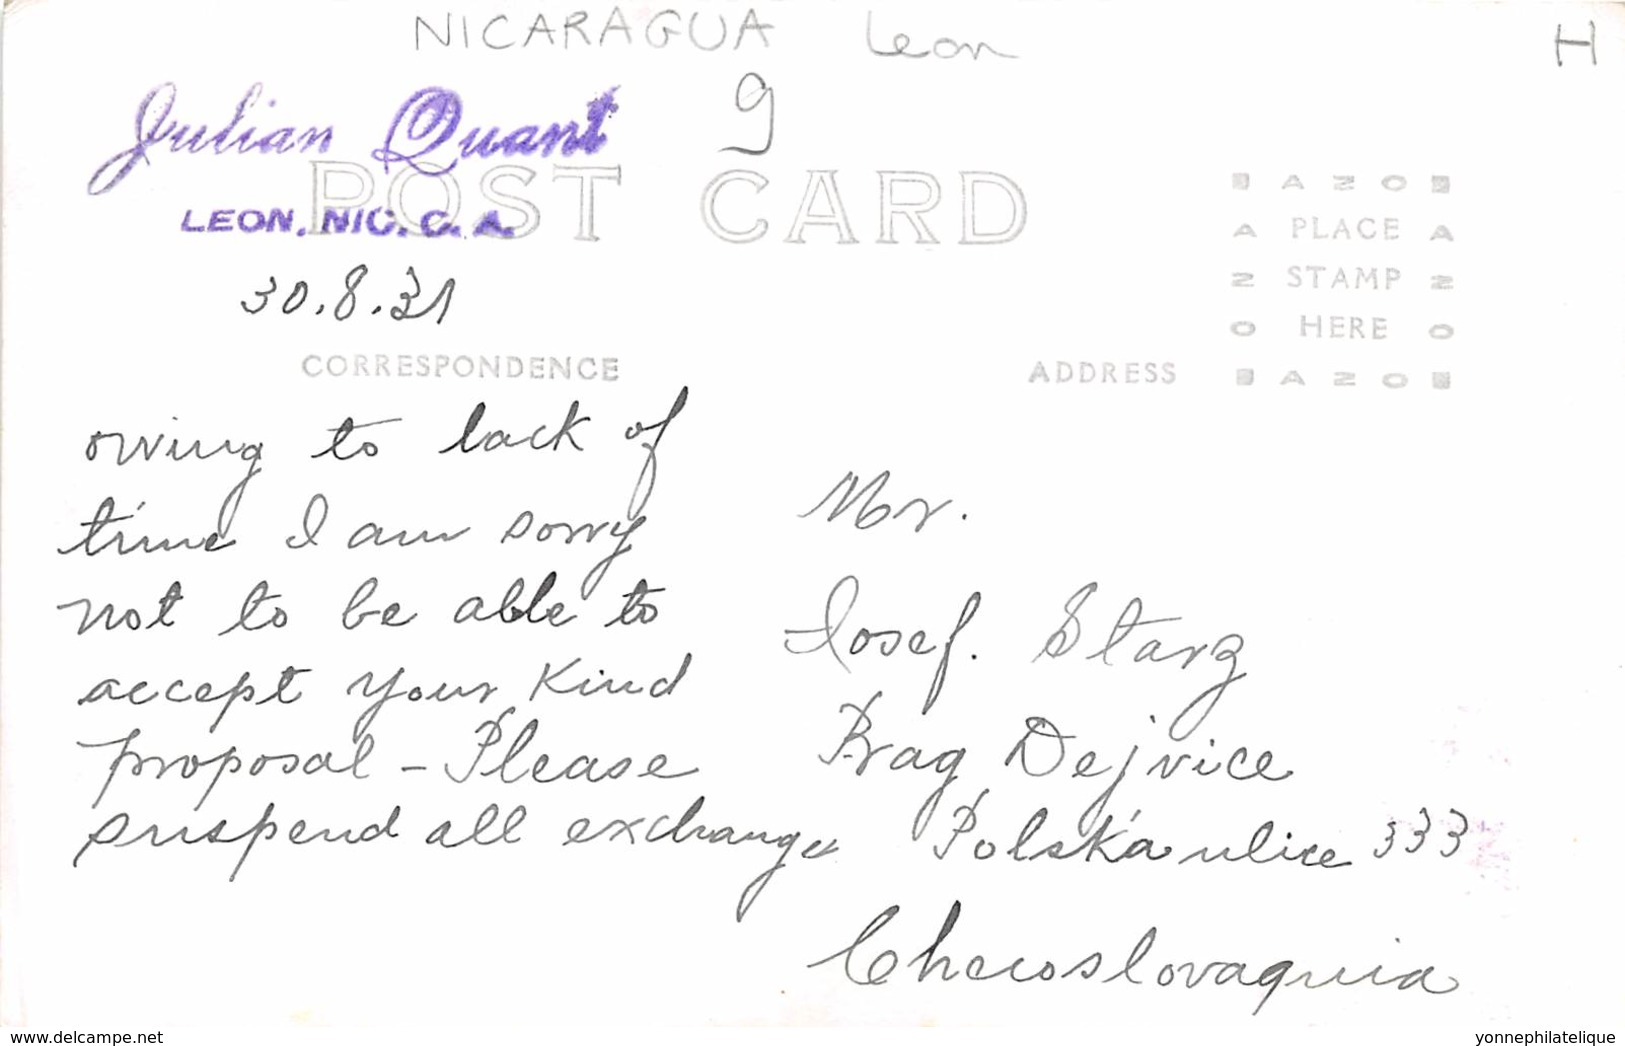 NICARAGUA Leon
H
9
Julian Quant
LEON, NIC. C. A.
POST CARD
30.8.31
AZO
A PLACE A
Z STAMP Z
O HERE O
AZO
CORRESPONDENCE
ADDRESS
owing to lack of
time I am sorry
not to be able to
accept your Kind
proposal - Please
suspend all exchange
Mr.
Josef. Starz
Prag Dejvice
Polská ulice 333
Checoslovaquia
delcampe.net
yonnephilatelique